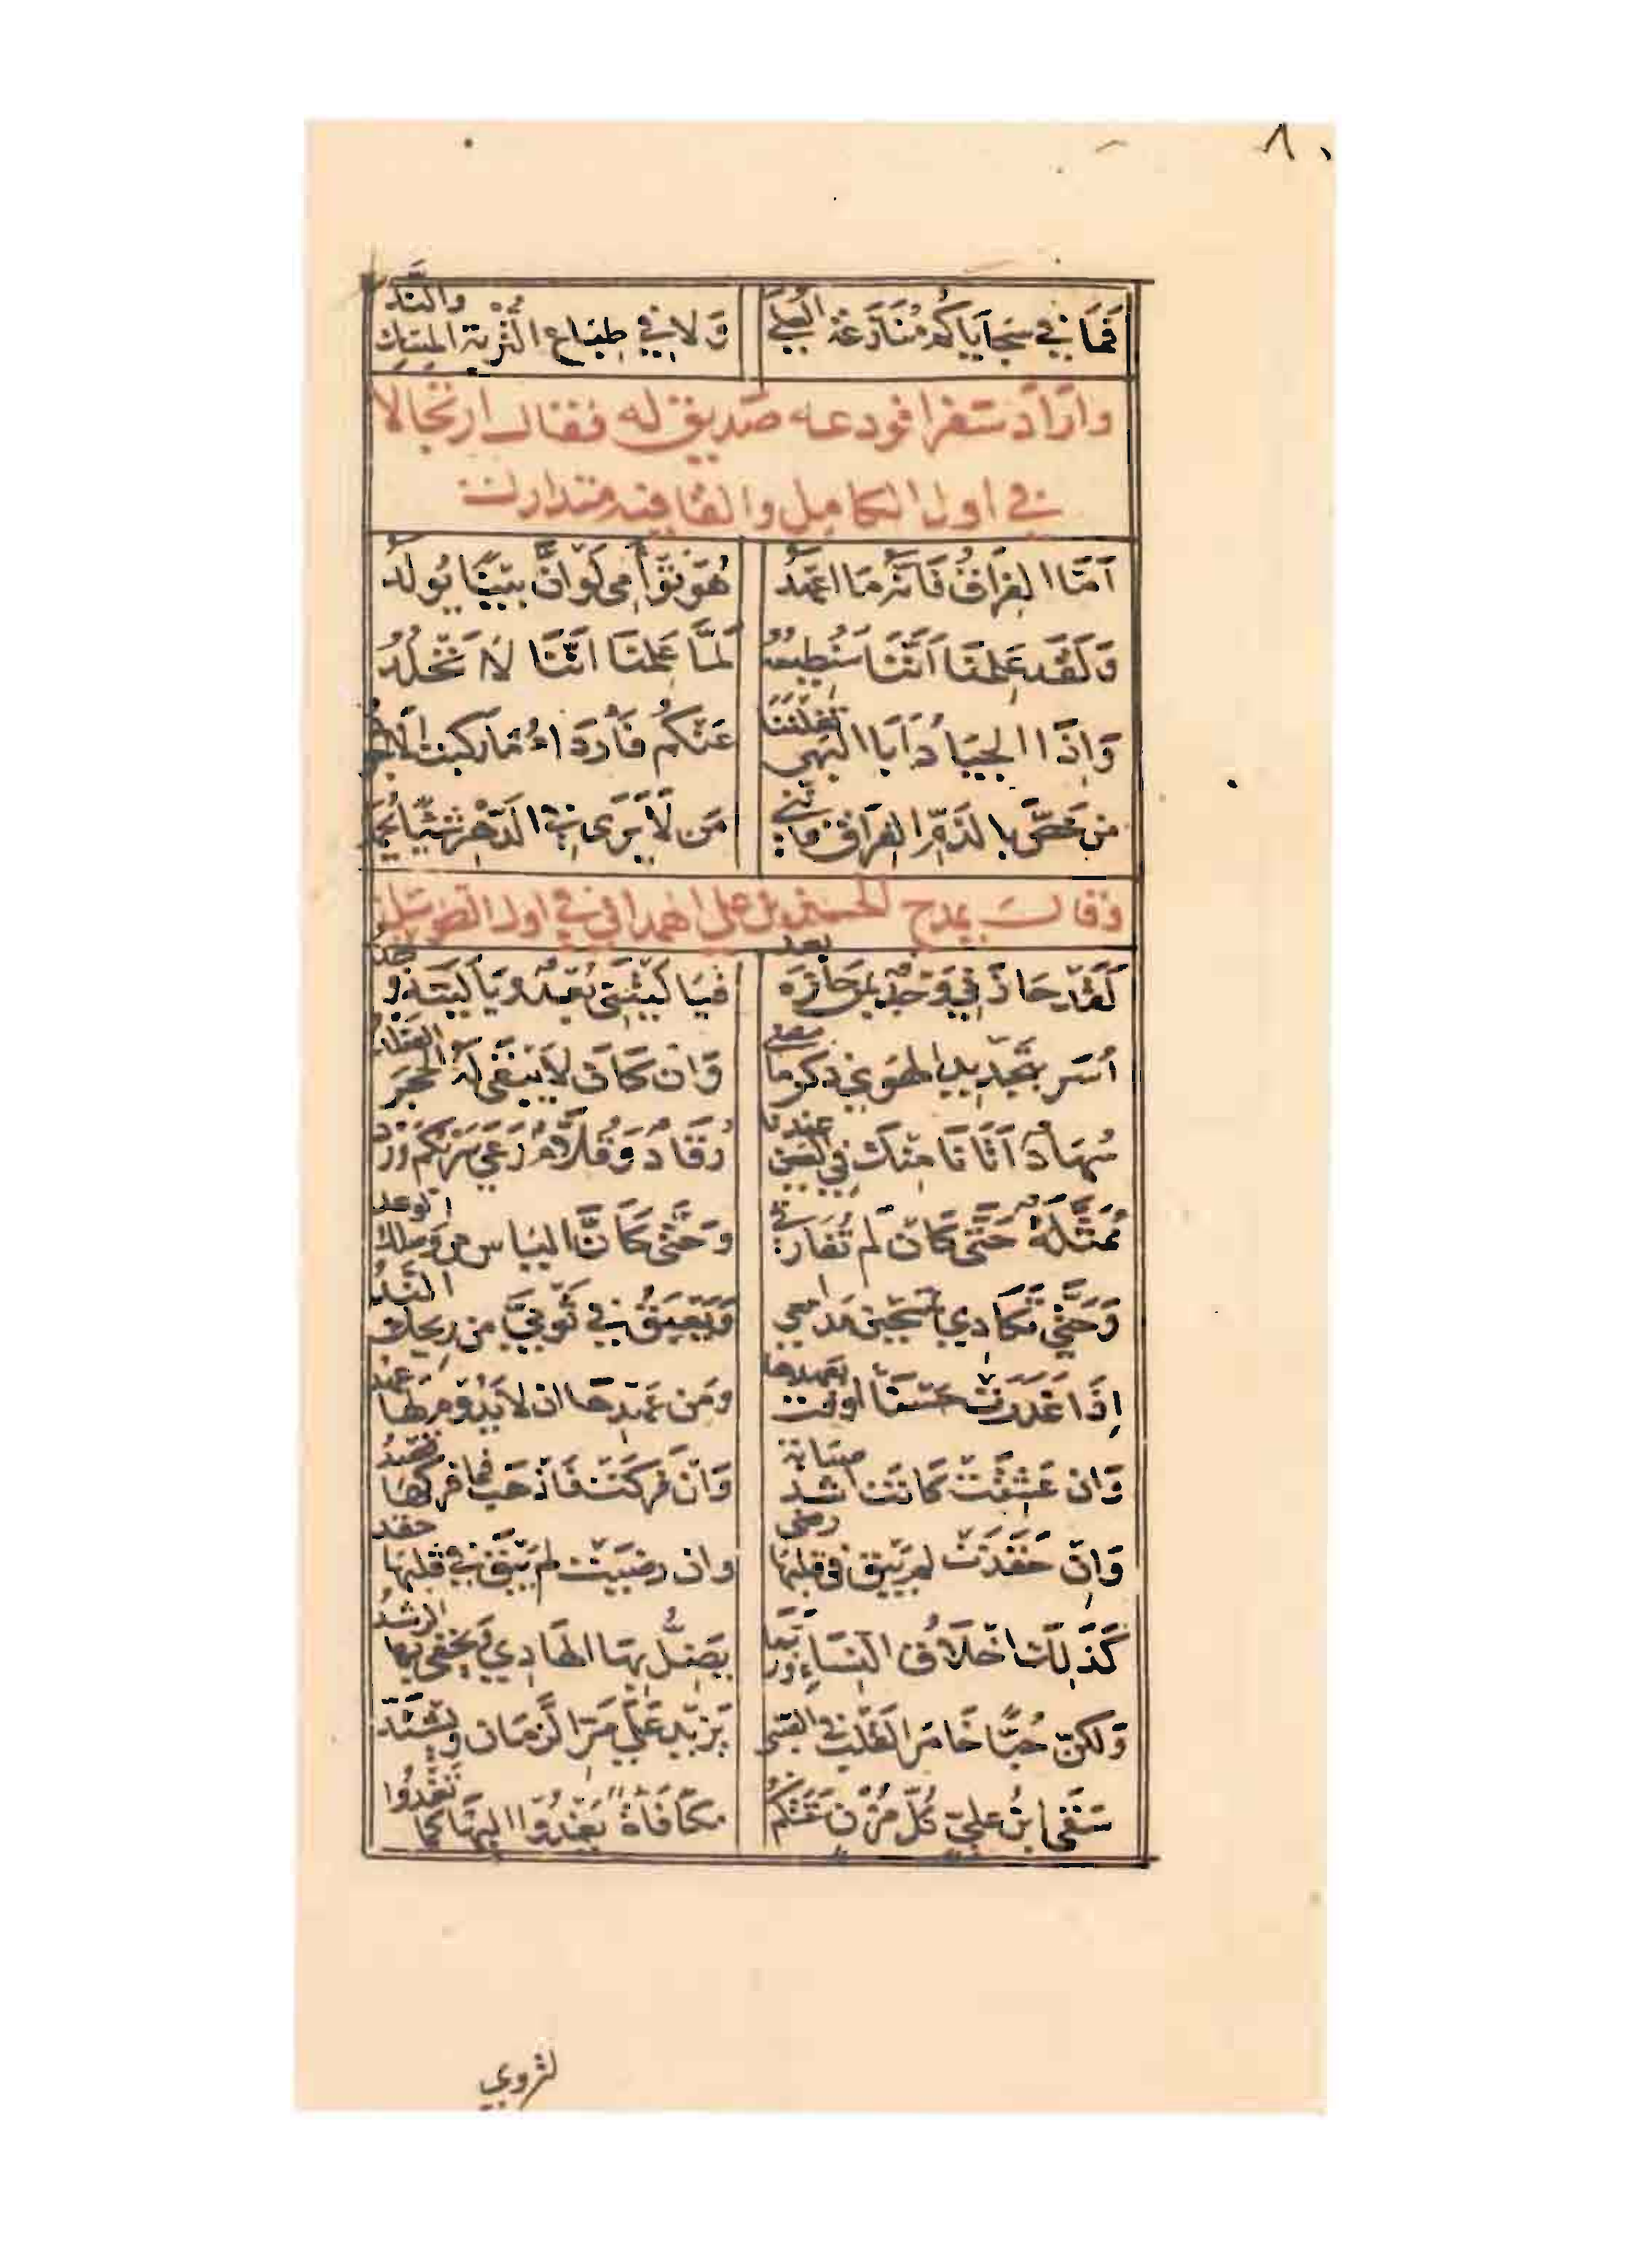 ٨٠
فَمَا في سَجَايَاكُم مُنَازَعَة العُلَى وَلَا فِي طِبَاع التُّربَة المِسك والنَّدُّ
وارَادَ سَفرا فودعه صَديق له فقال ارتجالا
في اول الكامل والقافيه متدارك
اَمَّا الفِراقُ فَانَّه مَا اعهَدُ هُوَ تَوأَمِي لَوْ اَنَّ بَينًا يُولَدُ
وَلَقَد عَلِمنَا اَنَّنَا سَنُطِيعُهُ لَمَّا عَلِمنَا انَّنَا لَا نَخْلُدُ
وَاِذَا الجيَادُ اَبَا البَهِي نَقَلنَنا عَنكُم فَأَردَاءُ مَا رَكِبتُ الأجودُ
مَن خَصَّ بالذَّمِّ الفِرَاق فإنني مَن لَا يَرَى في الدَّهرِ شَيًا يُحمَدُ
وقال يمدح الحسين بن علي الهمداني في اول الطويل
لَقَد حَازَنِي وَجْدٌ بمَن حَازَه بعد فَيَا لَيْتَنِي بُعدٌ وَيَا لَيتَه وجد
اُسَر بتَجديد الهَوى ذكر ما مضى وَان كَانَ لا يَبقَى لَه الحَجَر الصَّلد
سُهَادٌ اَتَانَا مِنكَ فِي العَين عندنا رُقَادٌ وَقُلَّامٌ رَعَى سَرْبكُم وَرْد
مُمَثَّلَةٌ حَتَّى كَان لَم تُفَارقي وَحَتَّى كَانَّ اليَاس من وَصلك الوعد
وَحَتَّى تَكَادِي تَمسَحِين مَدمَعي وَيَعبَقُ في ثَوبَيَّ من رِيحك النَّدُّ
اِذَا غَدَرَت حَسنَا اوفت بعهدها وَمَن عَهدِهَا ان لَا يَدُوم لهَا عهد
وَان عَشِقَت كَانَت اشد صبابة وَان فَرِكَت فَاذهَب فَمَا فركها قصد
وَان حَقَدَت لم يَبق في قلبهَا رضى وان رضيَت لم يَبق في قلبهَا حقد
كَذَلِك اخلَاقُ النسَاء وَرُبَّمَا يَضِلُّ بهَا الهَادِي وَيخفى بها الرشدُ
وَلكِنّ حُبًّا خَامَر القَلب في الصبى يَزيد عَلَى مَر الزَّمان ويشتَدّ
سَقَى ابنُ عليّ كُلَّ مُزْن سَقَتْكُم مكَافَاةً يَغْدُو اليهَا كما تَغْدُوا
لتروي